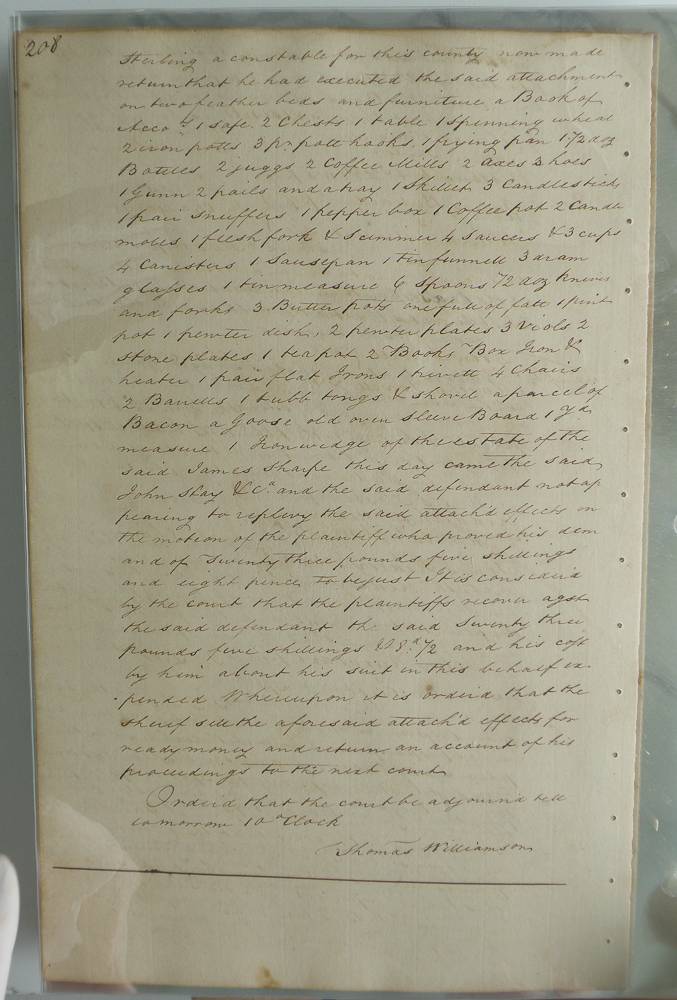 208
Sterling a constable for this county now made
return that he had executed the said attachment
on two feather beds and furniture a Book of
Acco.ts 1 safe 2 Chests 1 table 1 Spenning wheal
2 iron potts 3 pr. pott hooks, 1 frying pan 1 1/2 doz
Botles 2 juggs 2 Coffee Mills 2 axes 3 hoes
1 Gunn 2 pails and a tray 1 Skillet 3 Candlesticks
1 pair Snuffers 1 pepper box 1 Coffee pot 2 Candle
moles 1 flesh fork & Scimmer 4 Saucers & 3 cups
4 Canisters 1 Sausepan 1 tin funnell 3 dram
glasses 1 tin measure 6 Spoons 1/2 doz knives
and forks 3 Butter pots one full of fatt 1 pint
pot 1 pewter dish, 2 pewter plates 3 Viols 2
Stone plates 1 tea pot 2 Books Box Iron &
heater 1 pair flat Irons 1 trivett 4 Chairs
2 Barrells 1 tubb tongs & shovel a parcel of
Bacon a Goose old oven Sleeve Board 1 Yd.
measure 1 Iron wedge of the estate of the
said James Sharpe this day came the said
John Hay & Ca. and the said defendant not ap
pearing to replevy the said attach'd effects on
the motion of the plaintiff who proved his dem
and of Twenty three pounds five shillings
and eight pence to be just It is consider'd
by the court that the plaintiffs recover agst
the said defendant the said Twenty three
pounds five shillings & 8.d 1/2 and his cost
by him about his suit in this behalf ex-
pended Whereupon it is order'd that the
sheref sell the aforesaid attach'd effects for
ready money and return an account of his
proceedings to the next court
Order'd that the court be adjourn'd till
tomorrow 10 o Clock
Thomas Williamson